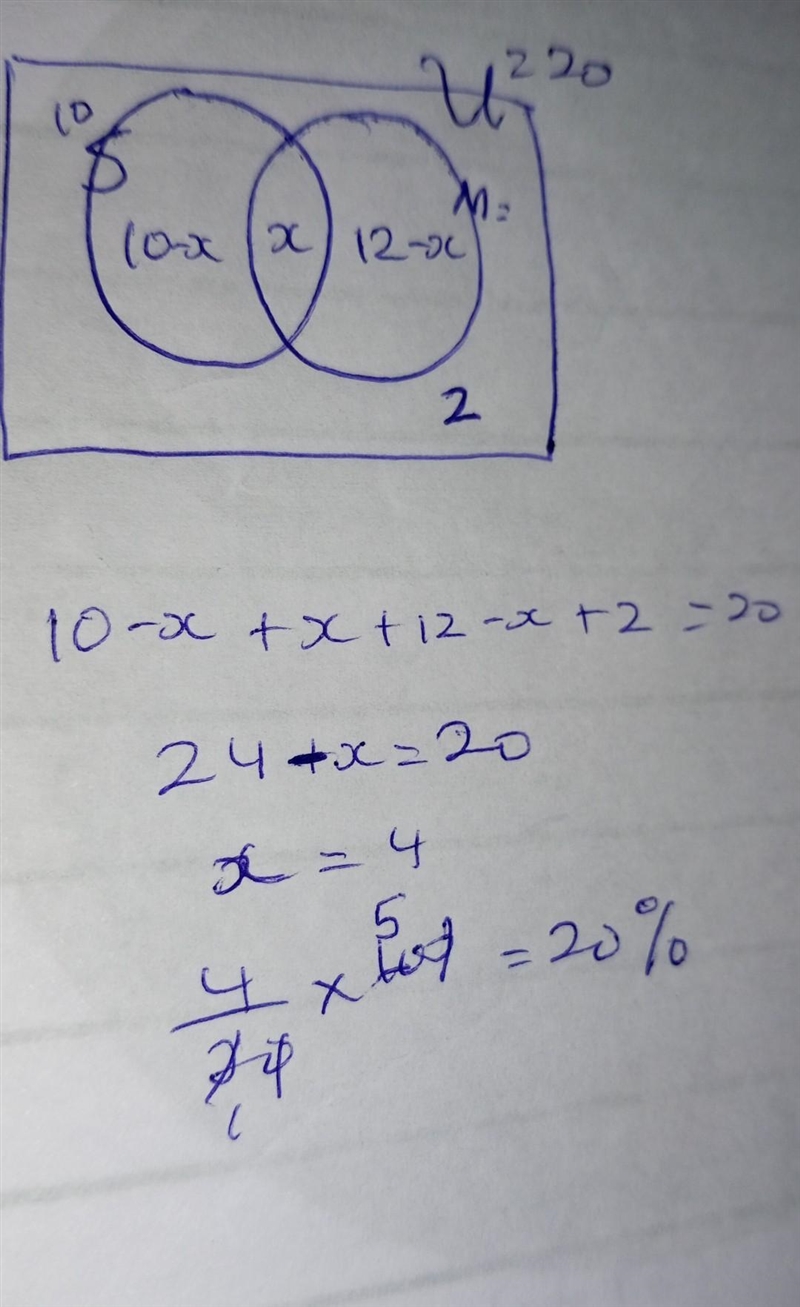 U = 20
10
S
M =
10-x x 12-x
2
10 -x + x + 12 -x + 2 = 20
24 -x = 20
x = 4
5
4/20 × 100 = 20%
1